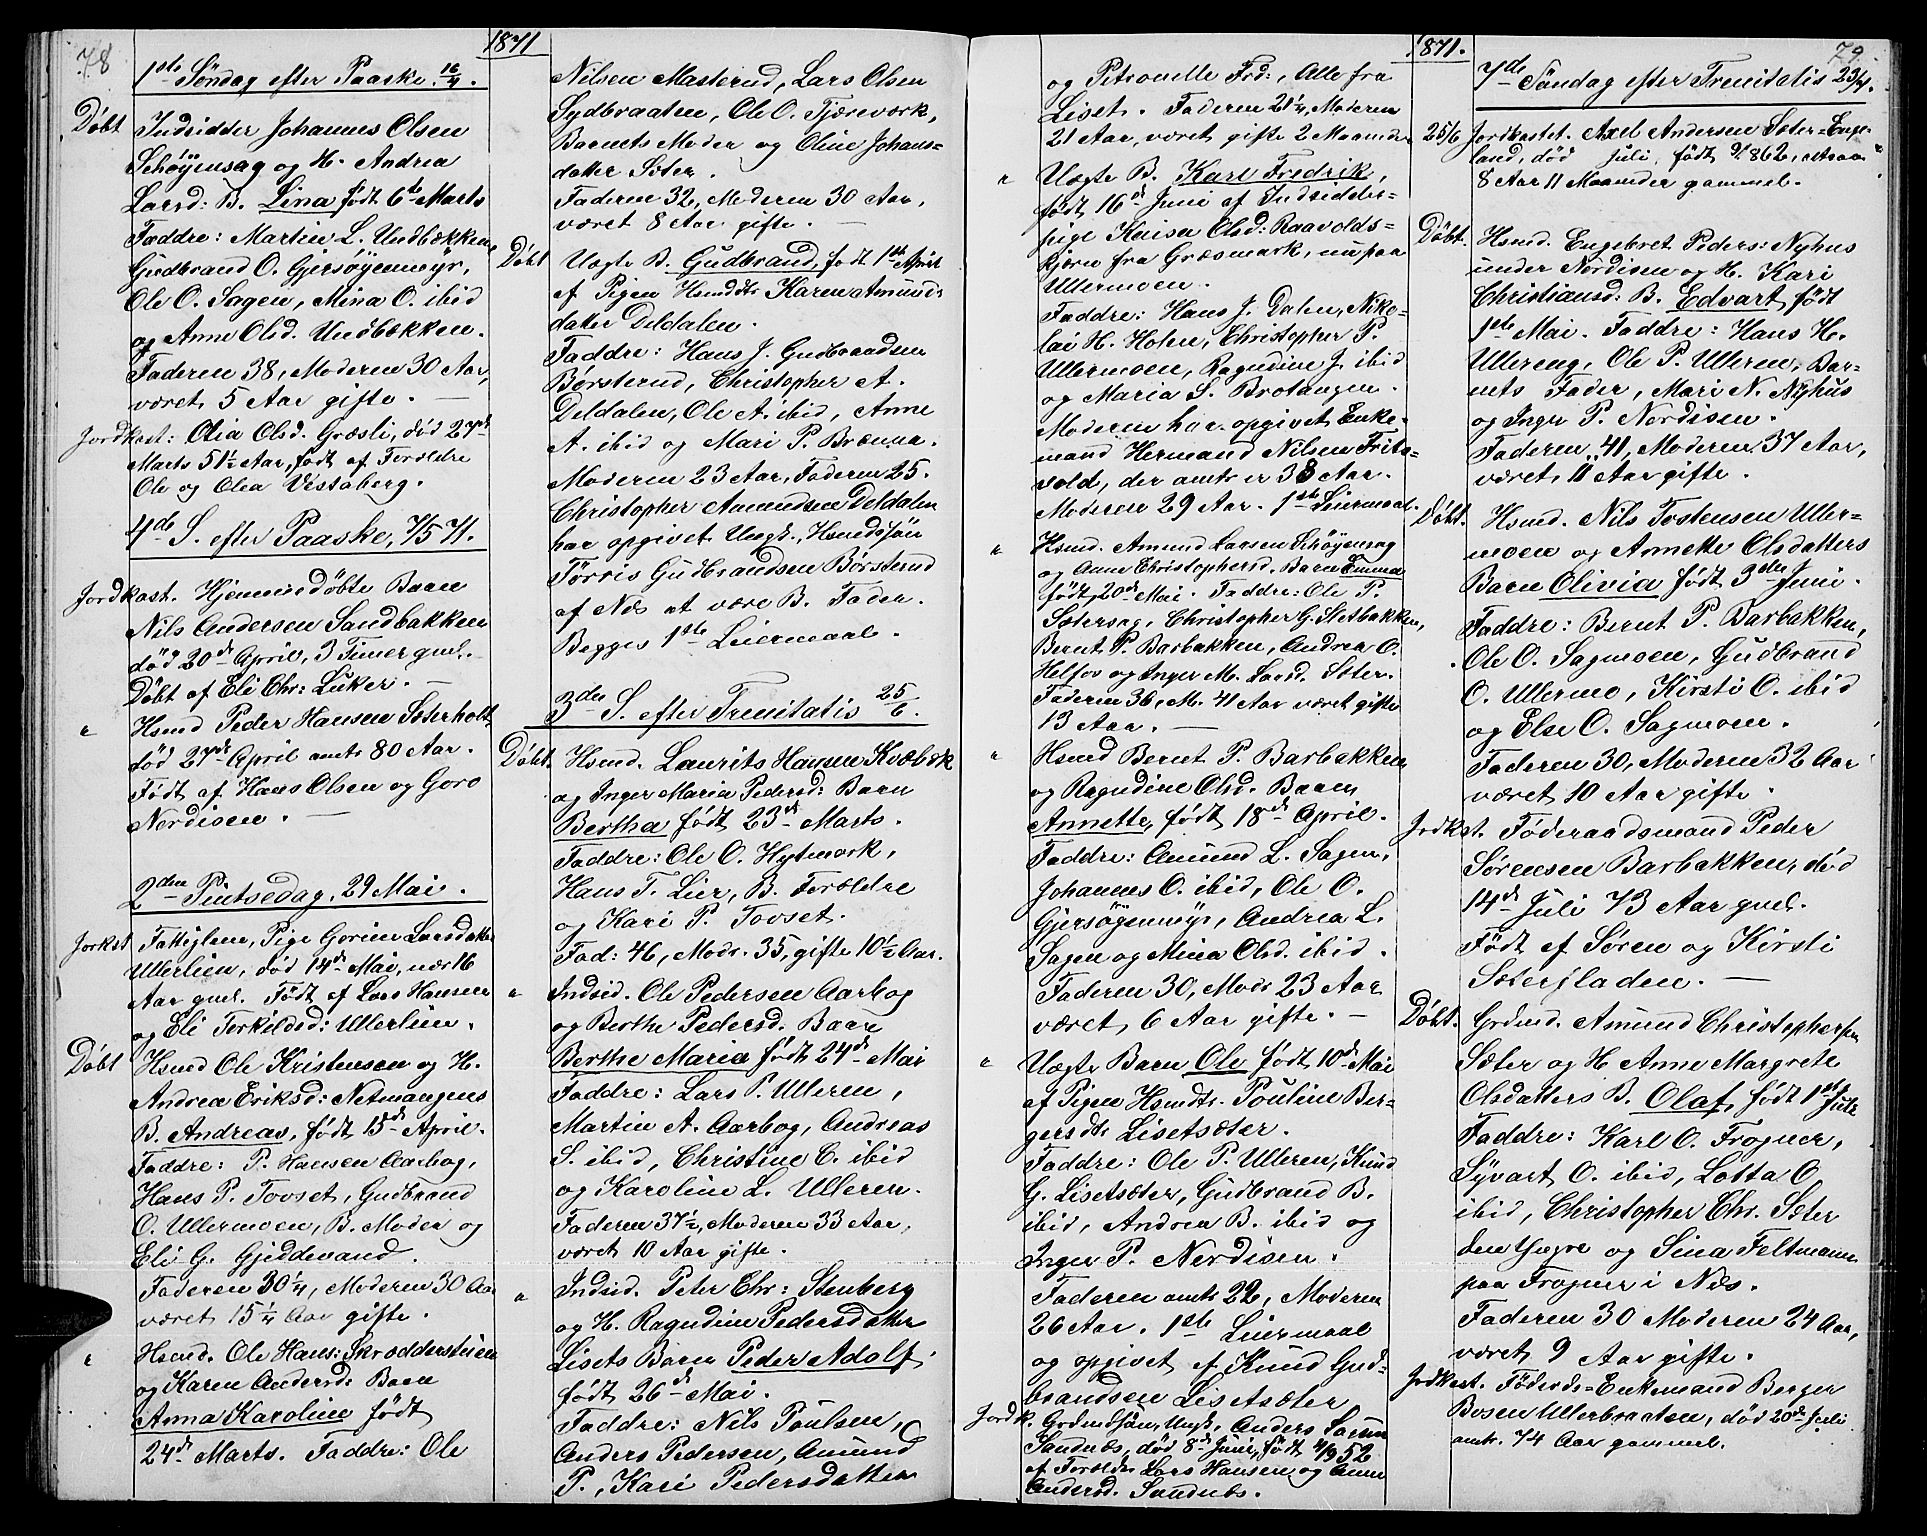 78
1871
1ste Søndag efter Paaske 16/4.
Døbt Indsidder Johannes Olsen
Schøyensag og H. Andrea
Larsd: B. Lina født 6te Marts
Faddre: Martin L. Undbækken
Gudbrand O. Gjersøyenmyr,
Ole O. Sagen, Mina O. ibid
og Anne Olsd. Undbækken.
Faderen 38, Moderen 30 Aar,
været 5 Aar gifte.
Jordkast: Olia Olsd. Græsli, død 27de
Marts 51½ Aar, født af Forældre
Ole og Olea Vestaberg.
4de S. efter Paaske, 7/5 71.
Jordkast. Hjemmedøbte Baren
Nils Andersen Sandbakken
død 20de April, 3 Timer gml.
Døbt af Eli Chr: Luker.
" Hsmd Peder Hansen Sæterholt
død 27de April amtr 80 Aar.
Født af Hans Olsen og Goro
Nordisen.
2den Pintsedag, 29 Mai.
Jorkst Fattiglem, Pige Gorine Larsdatter
Ullerlien, død 14de Mai, nær 16
Aar gml. Født af Lars Hansen
og Eli Terkildsd: Ullerlien.
Døbt Hsmd Ole Kristensen og H.
Andrea Eriksd: Netmangens
B. Andreas, født 15de April.
Faddre: P. Hansen Aarbog,
Hans P. Tovset, Gudbrand
O. Ullermoen, B. Moder og
Eli G. Gjeddevand.
Faderen 30¼, Moderen 30 Aar
været 15¼ Aar gifte.
" Hsmd. Ole Hans: Skrædderstuen
og Karen Andersd: Baren
Anna Karoline født
24de Marts. Faddre: Ole
Nilsen Masterud, Lars Olsen
Sydbraaten, Ole O. Tjæreværk,
Barnets Moder og Oline Johans-
datter Sæter.
Faderen 32, Moderen 30 Aar,
været 8 Aar gifte.
Døbt Uægte B. Gudbrand, født 1ste April
af Pigen Hsmdtr Karen Amunds
datter Deldalen.
Faddre: Hans J. Gudbrandsen
Børsterud, Christopher A.
Deldalen, Ole A. ibid, Anne
A. ibid og Mari P. Brænna.
Moderen 23 Aar, Faderen 25.
Christopher Amundsen Deldalen
har opgivet Ungk. Hsmdssøn
Tørris Gudbrandsen Børsterud
af Næs at være B. Fader.
Begges 1ste Leiermaal.
3die S. efter Trenitatis 25/6
Døbt Hsmd. Laurits Hansen Kvæbæk
og Inger Maria Pedersd: Barn
Bertha født 23de Marts.
Faddre: Ole O. Hytmork,
Hans T. Lier, B. Forældre
og Kari P. Tovset.
Fad: 46, Modr. 35, gifte 10½ Aar.
" Indsid. Ole Pedersen Aarbog
og Berthe Pedersd. Barn
Berthe Maria født 24de Mai
Faddre: Lars P. Ulleren,
Martin A. Aarbog, Andreas
S. ibid, Christine C. ibid
og Karoline L. Ulleren.
Faderen 37½, Moderen 33 Aar,
været 10 Aar gifte.
" Indsid. Peter Chr: Stenberg
og H. Ragndine Pedersdatter
Lisets Baren Peder Adolf,
født 26de Mai.
Faddre: Nils Poulsen,
Anders Pedersen, Amund
P., Kari Pedersdatter
79
1871.
og Petronelle Frd:, Alle fra
Liset. Faderen 21¼, Moderen
21 Aar, været gifte 2 Maaneder
" Uægte B. Karl Fredrik,
født 16de Juni af Indsidder-
pige Kaisa Olsd: Raavolds-
kjern fra Græsmark, nu paa
Ullermoen.
Faddre: Hans J. Dalen, Niko-
lai H. Holen, Christopher P.
Ullermoen, Ragndine J. ibid
og Maria S. Brotangen.
Moderen har opgivet Enke-
mand Hermand Nilsen Frits-
vold, der amtr er 38 Aar.
Moderen 29 Aar. 1ste Leiermaal.
" Hsmd. Amund Larsen Schøyensag
og Anne Christophersd. Barn Emma
født 20de Mai. Faddre: Ole P.
Sætersag, Christopher G. Stetbakken,
Bernt P. Barbakken, Andrea O.
Helfos og Inger M. Larsd. Sæter.
Faderen 36, M. 41 Aar været gifte
13 Aar.
" Hsmd Bernt P. Barbakken
og Ragndine Olsd. Baren
Annette, født 18de April.
Faddre: Amund L. Sagen,
Johannes O. ibid, Ole O.
Gjersøyenmyr, Andrea L.
Sagen og Mina Olsd. ibid.
Faderen 30, Modr 23 Aar
været 6 Aar gifte.
" Uægte Baren Ole født 10de Mai
af Pigen Hsmdtr. Pouline Ber-
gersdtr Lisetsæter.
Faddre: Ole P. Ulleren, Knud
G. Lisetsæter, Gudbrand B.
ibid, Andrea B. ibid og
Inger P. Nordisen.
Faderen amtr 22, Moderen
26 Aar. 1ste Leiermaal
og opgivet af Knud Gud-
brandsen Lisetsæter
Jordk. Grdmdssøn, Ungk, Anders Larsen
Sandnæs, død 8de Juni, født 4/9 52
af Foreldr Lars Hansen og Anne
Andersd. Sandnæs.
7de Søndag efter Trenitatis 23/7.
25/6 Jordkastet. Axel Andersen Sæter-Enge-
land, død Juli, født 9/ 862, altsaa
8 Aar 11 Maaneder gammel.
Døbt. Hsmd. Engebret Peders: Nyhus
under Nordisen og H. Kari
Christiansd: B. Edvart, født
1ste Mai. Faddre: Hans H.
Ullereng, Ole P. Ulleren, Bar-
nets Fader, Mari N. Nyhus
og Inger P. Nordisen.
Faderen 41, Moderen 37 Aar,
været 11 Aar gifte.
Døbt. Hsmd. Nils Tostensen Uller-
moen og Annette Olsdatters
Barn Olivia født 3die Juni.
Faddre: Bernt P. Barbakken,
Ole O. Sagmoen, Gudbrand
O. Ullermo, Kirsti O. ibid
og Else O. Sagmoen.
Faderen 30, Moderen 32 Aar
været 10 Aar gifte.
Jordkst. Føderaadsmand Peder
Sørensen Barbakken, død
14de Juli 73 Aar gml.
Født af Søren og Kirsti
Sæterfladen.
Døbt. Grdmd. Amund Christophersen
Sæter og H Anne Margrete
Olsdatters B. Olaf, født 1ste Juli
Faddre: Karl O. Frogner,
Syvart O. ibid, Lotta O
ibid, Christopher Chr. Sæter
den Yngre og Sina Feltmann
paa Frogner i Næs.
Faderen 30 Moderen 24 Aar,
været 9 Aar gifte.
Jordkast. Føderds-Enkemand Berger
Bosen Ullerbraaten, død 20de Juli
amtr. 74 Aar gammel.